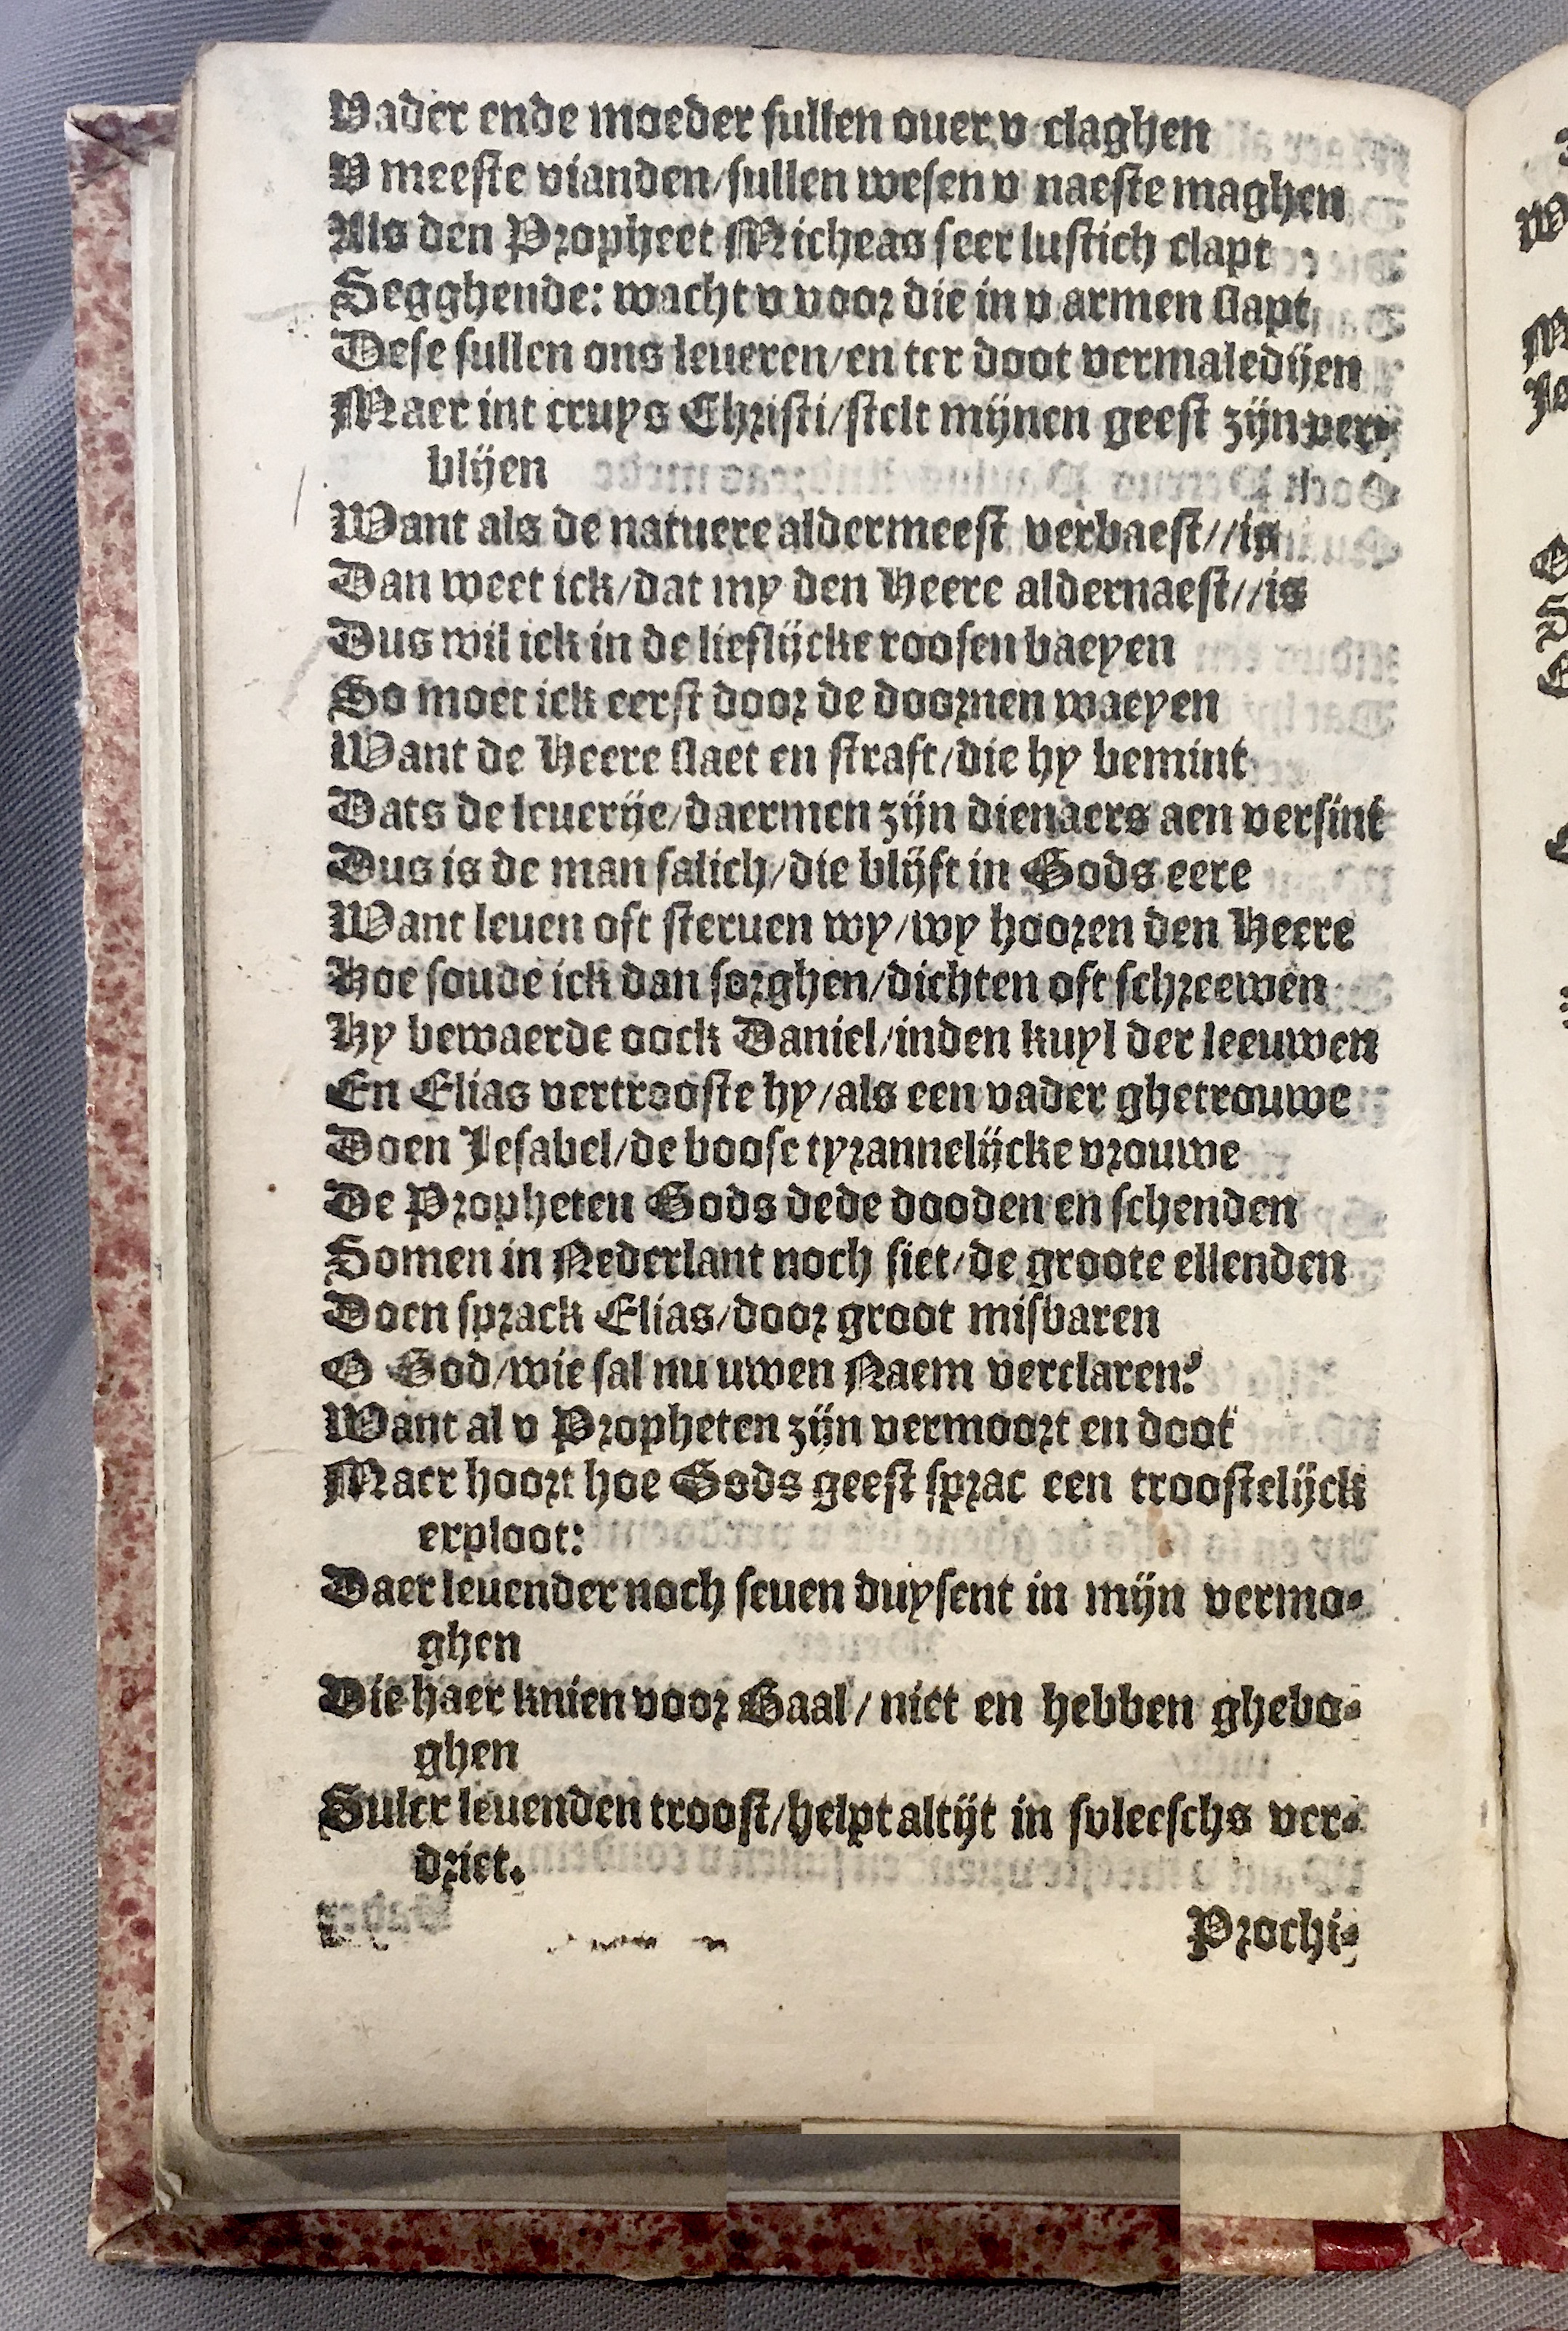 Vader ende moeder sullen ouer v claghen
V meeste vianden/sullen wesen v naeste maghen
Als den Propheet Micheas seer lustich clapt
Segghende: wacht v voor die in v armen slapt
Dese sullen ons leueren/en ter doot vermaledijen
Maer int cruys Christi/stelt mijnen geest zijn ver-
blijen
Want als de natuere aldermeest verbaest//is
Dan weet ick/dat my den Heere aldernaest//is
Dus wil ick in de lieflijcke roosen baeyen
So moet ick eerst door de doornen waeyen
Want de Heere slaet en straft/die hy bemint
Dats de leuerije/daermen zijn dienaers aen versint
Dus is de man salich/die blijft in Gods eere
Want leuen oft steruen wy/wy hooren den Heere
Hoe soude ick dan sorghen/dichten oft schreewen
Hy bewaerde oock Daniel/inden kuyl der leeuwen
En Elias vertrooste hy/als een vader ghetrouwe
Doen Jesabel/de boose tyrannelijcke vrouwe
De Propheten Gods dede dooden en schenden
Somen in Nederlant noch siet/de groote ellenden
Doen sprack Elias/door groot misbaren
O God/wie sal nu uwen Naem verclaren?
Want al v Propheten zijn vermoort en doot
Maer hoort hoe Gods geest sprac een troostelijck
exploot:
Daer leuender noch seuen duysent in mijn vermo-
ghen
Die haer knien voor Baal/niet en hebben ghebo-
ghen
Sulcr leuenden troost/helpt altijt in svleeschs ver-
driet.
Prochi-